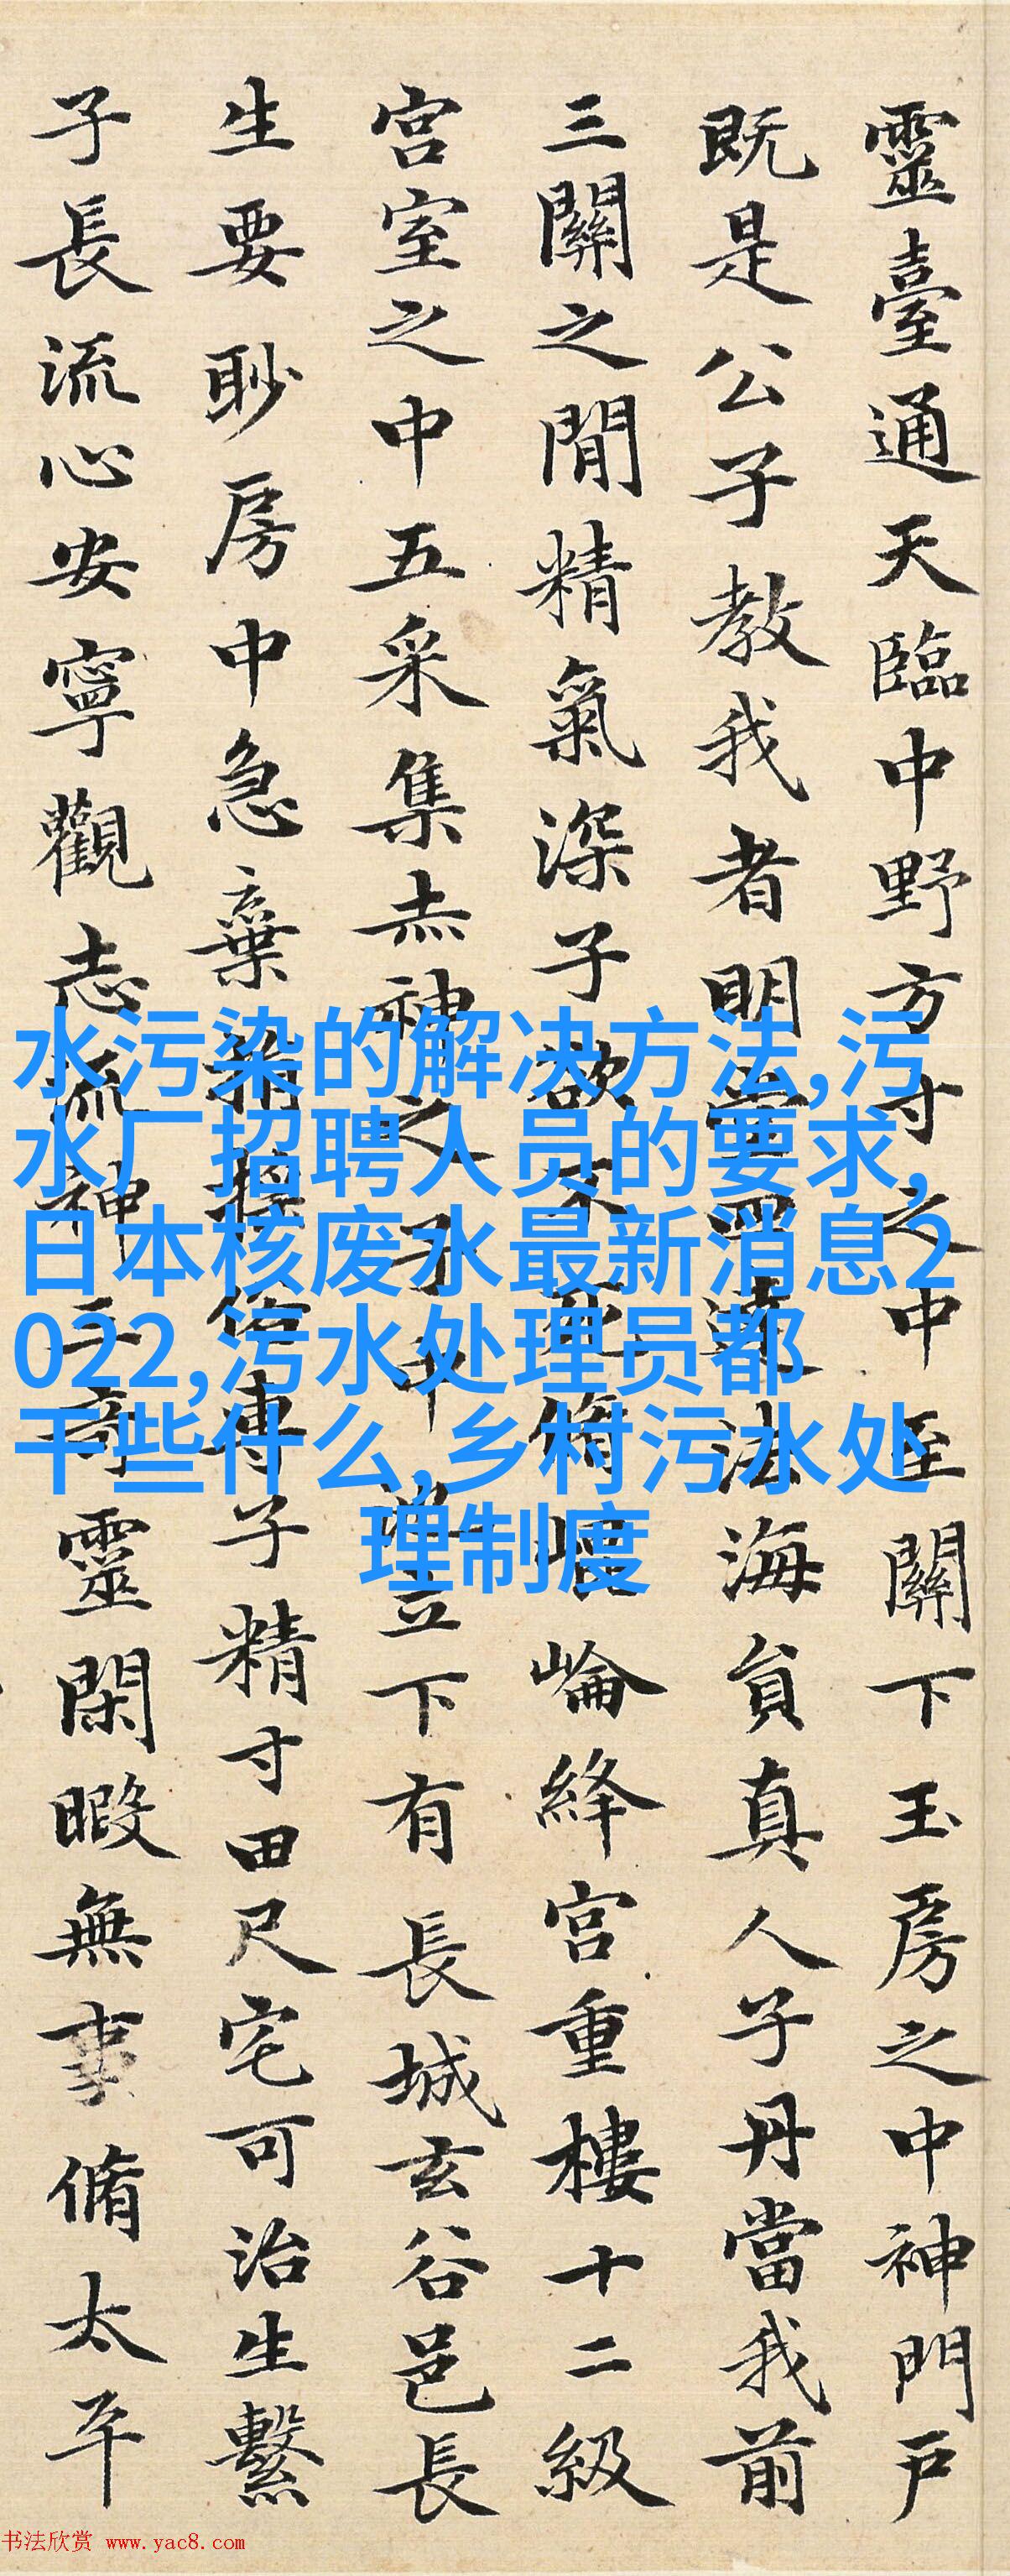 靈臺通天臨中野方寸之中至關下玉房之中神門戶
既是公子教我者明堂四達法海負真人子丹當我前
三關之閒精氣深子欲不死脩崐崘絳宮重樓十二級
宮室之中五采集赤神之子中池立下有長城玄谷邑長
生要眇房中急棄捐淫俗專子精寸田尺宅可治生繫
子長流心安寧觀志流神三奇靈閑暇無事脩太平
水污染的解决方法,污
水厂招聘人员的要求,
日本核废水最新消息2
022,污水处理员都
干些什么,乡村污水处
理制度
书法欣赏 www.yac8.com